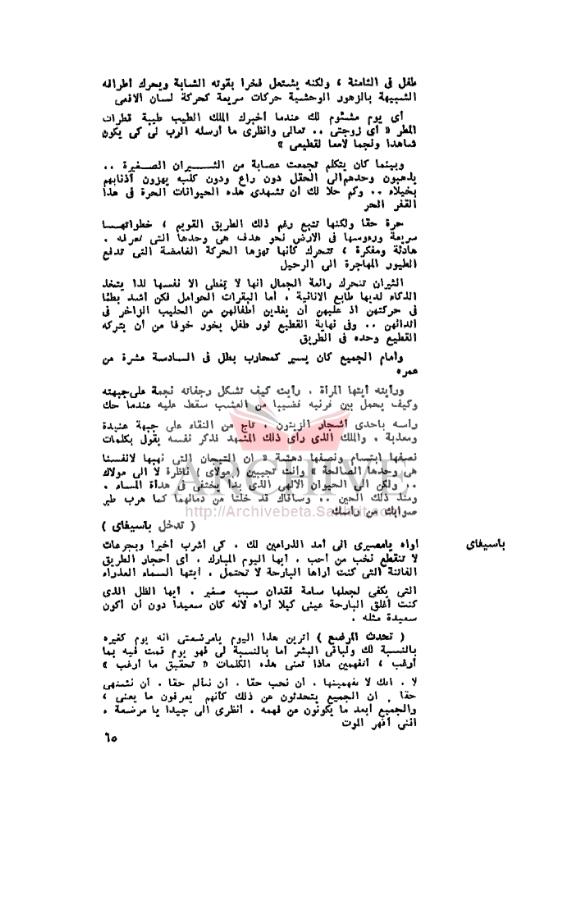 طفل فى الثامنة ، ولكنه يشتعل فخرا بقوته الشابة ويحرك أطرافه
الشبيهة بالزهور الوحشية حركات سريعة كحركة لسان الافعى
أى يوم مشئوم لك عندما أخبرك الملك الطيب طيبة قطرات
المطر « أى زوجتى .. تعالى وانظرى ما أرسله الرب لى كى يكون
شاهدا ونجما لامعا لقطيعى »
وبينما كان يتكلم تجمعت عصابة من الثيران الصغيرة ..
يذهبون وحدهم الى الحقل دون راع ودون كلب يهزون أذنابهم
بخيلاء .. وكم حلا لك أن تشهدى هذه الحيوانات الحرة فى هذا
القفر الحر
حرة حقا ولكنها تتبع رغم ذلك الطريق القويم ، خطواتها
سريعة ورءوسها فى الارض نحو هدف هى وحدها التى تعرفه .
هادئة ومفكرة ، تتحرك كأنها تهزها الحركة الغامضة التى تدفع
الطيور المهاجرة الى الرحيل
الثيران تتحرك رائعة الجمال انها لا تمطى الا نفسها لذا يتخذ
الذكاء لديها طابع الانانية . أما البقرات الحوامل فكن أشد بطئا
فى حركتهن اذ عليهن أن يغذين أطفالهن من الحليب الزاخر فى
أثدائهن .. وفى نهاية القطيع ثور طفل يخور خوفا من أن يتركه
القطيع وحده فى الطريق
وأمام الجميع كان يسير كمحارب بطل فى السادسة عشرة من
عمره
ورأيته أيتها المرأة . رأيت كيف تشكل رجفاته نجمة على جبهته
وكيف يحمل بين قرنيه قضيبا من العشب سقط عليه عندما حك
رأسه باحدى أشجار الزيتون . تاج من النقاء على جبهة عنيدة
ومعذبة . والملك الذى رأى ذلك المشهد فذكر نفسه يقول بكلمات
نصفها ابتسام ونصفها دهشة « ان التيجان التى نهبها لانفسنا
هى وحدها الصالحة » وأنت تجيبين (مولاى) ناظرة لا الى مولاك
.. ولكن الى الحيوان الالهى الذى بدأ يختفى فى هدأة المساء .
ومنذ ذلك الحين .. وساقاك قد خلتا من دمائهما كما هرب طير
صوابك من رأسك
( تدخل باسيفاى )
باسيفاى
أواه يا مصيرى الى أمد الذراعين لك . كى أشرب أخيرا وبجرعات
لا تنقطع نخب من أحب . أيها اليوم المبارك . أى أحجار الطريق
الفاتنة التى كنت أراها البارحة لا تحتمل . أيتها السماء العذراء
التى يكفى لجعلها سامة فقدان سبب صغير . أيها الظل الذى
كنت أغلق البارحة عينى كيلا أراه لانه كان سعيدا دون أن أكون
سعيدة مثله .
( تحدث المرضع ) أترين هذا اليوم يا مرضعتى انه يوم كغيره
بالنسبة لك ولباقى البشر أما بالنسبة لى فهو يوم قمت فيه بما
أرغب ، أتفهمين ماذا تعنى هذه الكلمات « تحقيق ما أرغب »
لا . انك لا تفهمينها . أن نحب حقا . أن نتألم حقا . أن نشتهى
حقا . ان الجميع يتحدثون عن ذلك كأنهم يعرفون ما يعنى ،
والجميع أبعد ما يكونون عن فهمه . انظرى الى جيدا يا مرضعة .
اننى أقهر الموت
٦٥
ARCHIVE
http://Archivebeta.Sakhrit.com